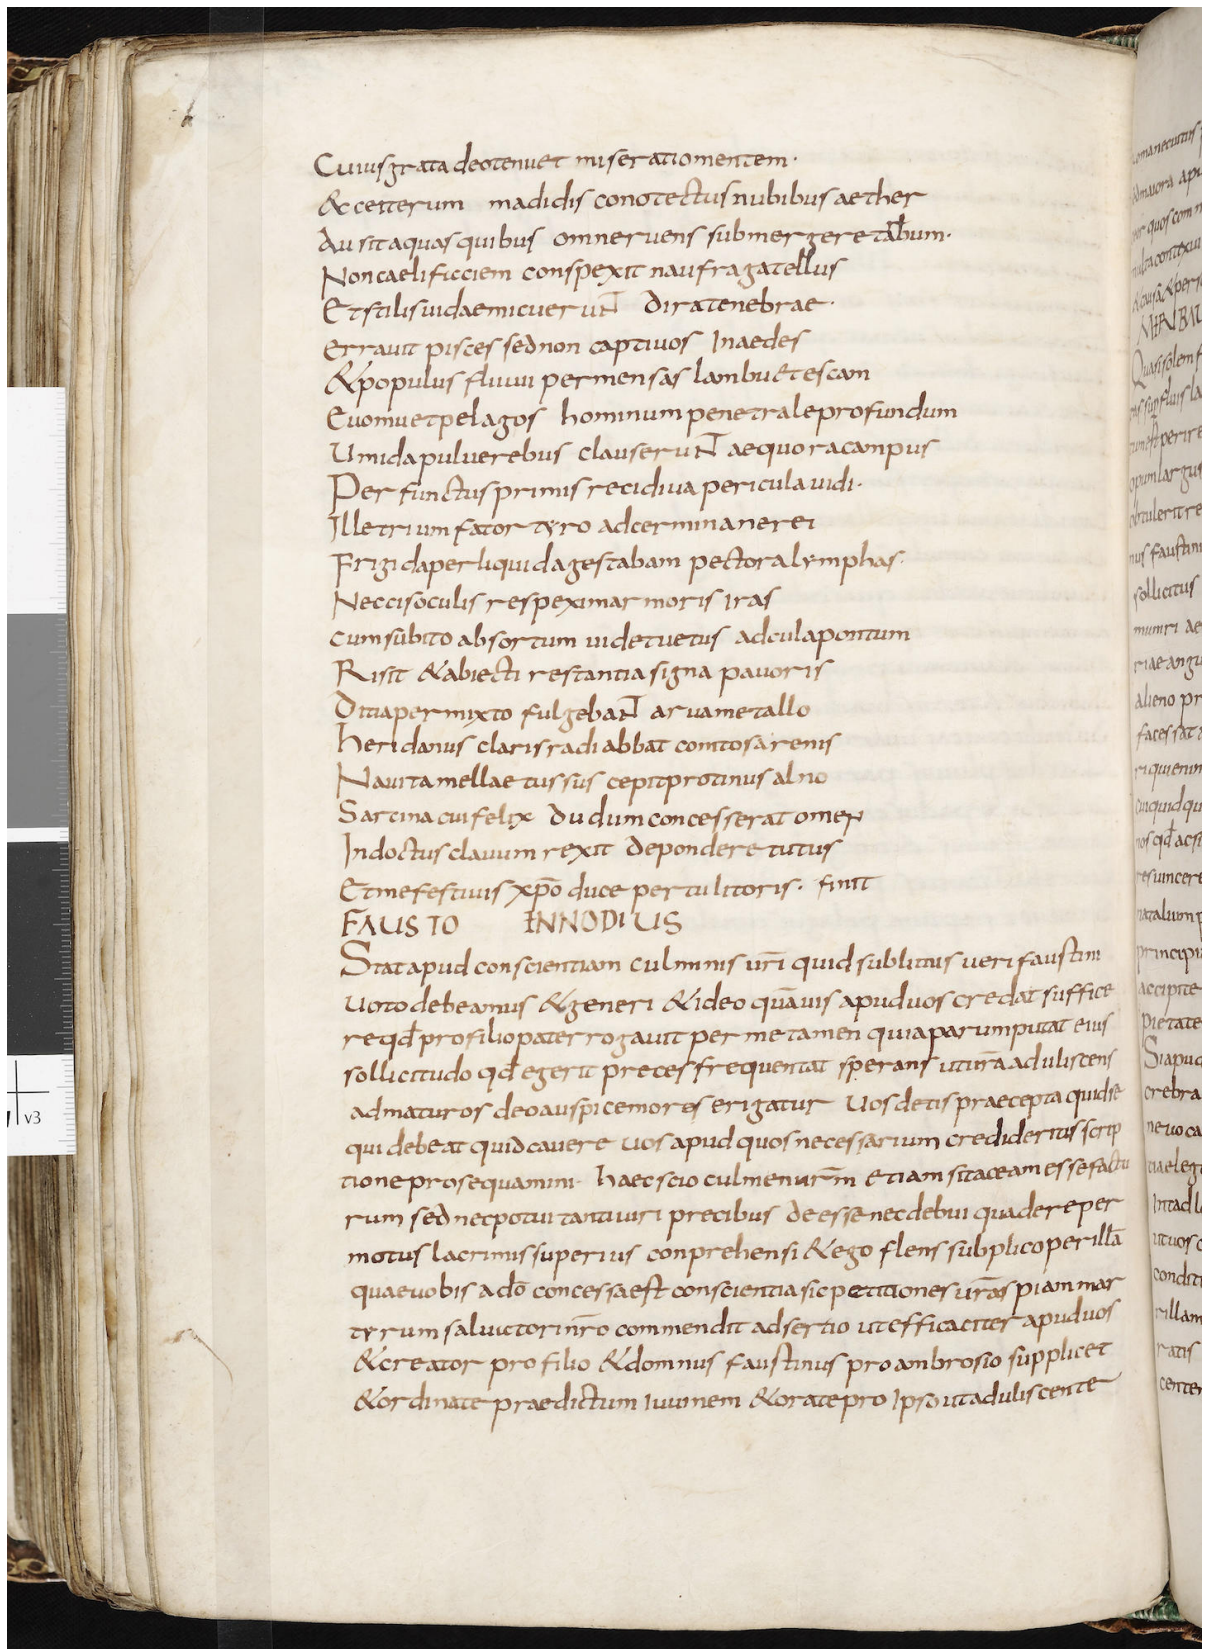 Cuius grata deo tenuet miseratio mentem·
& ceiterum madidis conotectus nubibus aether
Au sit aquas quibus omne ruens submergeret aƀbum·
Non caeli ficciem conspexit naufraga tellus
Et stilis uidae micuerunt dira tenebrae·
errauit pisces sed non captiuos Inaedes
& populus fluuii permensas lambuet escam
Euomuet pelagos hominum penetrale profundum
Umida puluerebus clauserunt aequora campus
Per functus primis recidiua pericula uidi·
Ille trium fator tyro ad cermina nerei
Frigida per liquida gestabam pectora lymphas·
Nec cis oculis respexi marmoris Iras
cum subito absortum uidet uetus adcula pontum
Risit & abiecti restantia signa pauoris
Ditia permixto fulgebant arua metallo
heridanus claris radiabbat comtos arenis
Nauita mellae tussus cepit protinus alno
Sarcina cui felix dudum concesserat omen
Indoctus clauum rexit depondere tutus
Et me festiuis xp̄o duce pertulit oris· finit
FAUSTO INNODIUS
Stat apud conscientiam culminis ur̄i quid sublimis ueri faustini
uoto debeamus & generi & ideo quāuis apud uos credat suffice
re qđ pro filio pater rogauit per me tamen quia parum putat eius
sollicitudo qđ egerit preces frequentat sperans utinā aduliscens
ad maturos deo auspice mores erigatur Uos detis praecepta quid se
qui debeat quid cauere uos apud quos necessarium credideritis scrip
tione prosequamini· haec scio culmen ur̄m etiam si taceam esse factu
rum sed nec potui tanti uiri precibus deesse nec debui qua dere per
motus lacrimis superius conprehensi & ego flens subplico per illā
quae uobis a dō concessa est conscientia sic petitiones ur̄as piam mar
tyrum salui ctori nr̄o commendit adsertio ut efficaciter apud uos
& creator pro filio & domnus faustinus pro ambrosio supplicet
& ordinate praedictum Iuuinem & orate pro Ipso ut aduliscente